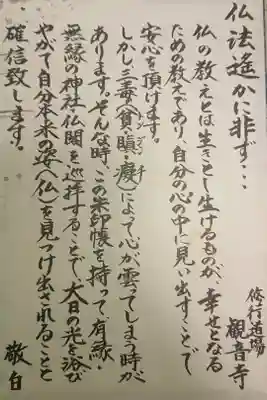 仏法遙かに非ず・・・
修行道場 観音寺
仏の教えとは生きとし生けるものが、幸せとなる
ための教えであり、自分の心の中に見い出すことで
安心を頂けます。
しかし三毒(貪・瞋・癡)によって心が雲ってしまう時が
あります。そんな時、この朱印帳を持って有縁・
無縁の神社仏閣を巡拝することで、大日の光を浴び
やがて自分本来の姿(仏)を見つけ出されることと
確信致します。
敬白